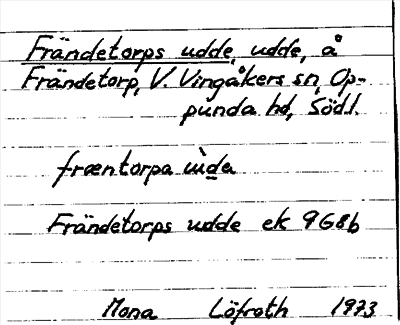 Frändetorps udde, udde, å
Frändetorp, V. Vingåkers sn, Op-
punda hd, Södl.
fræntorpa
Frändetorps udde ek 9G8b
Mona Löfroth 1973